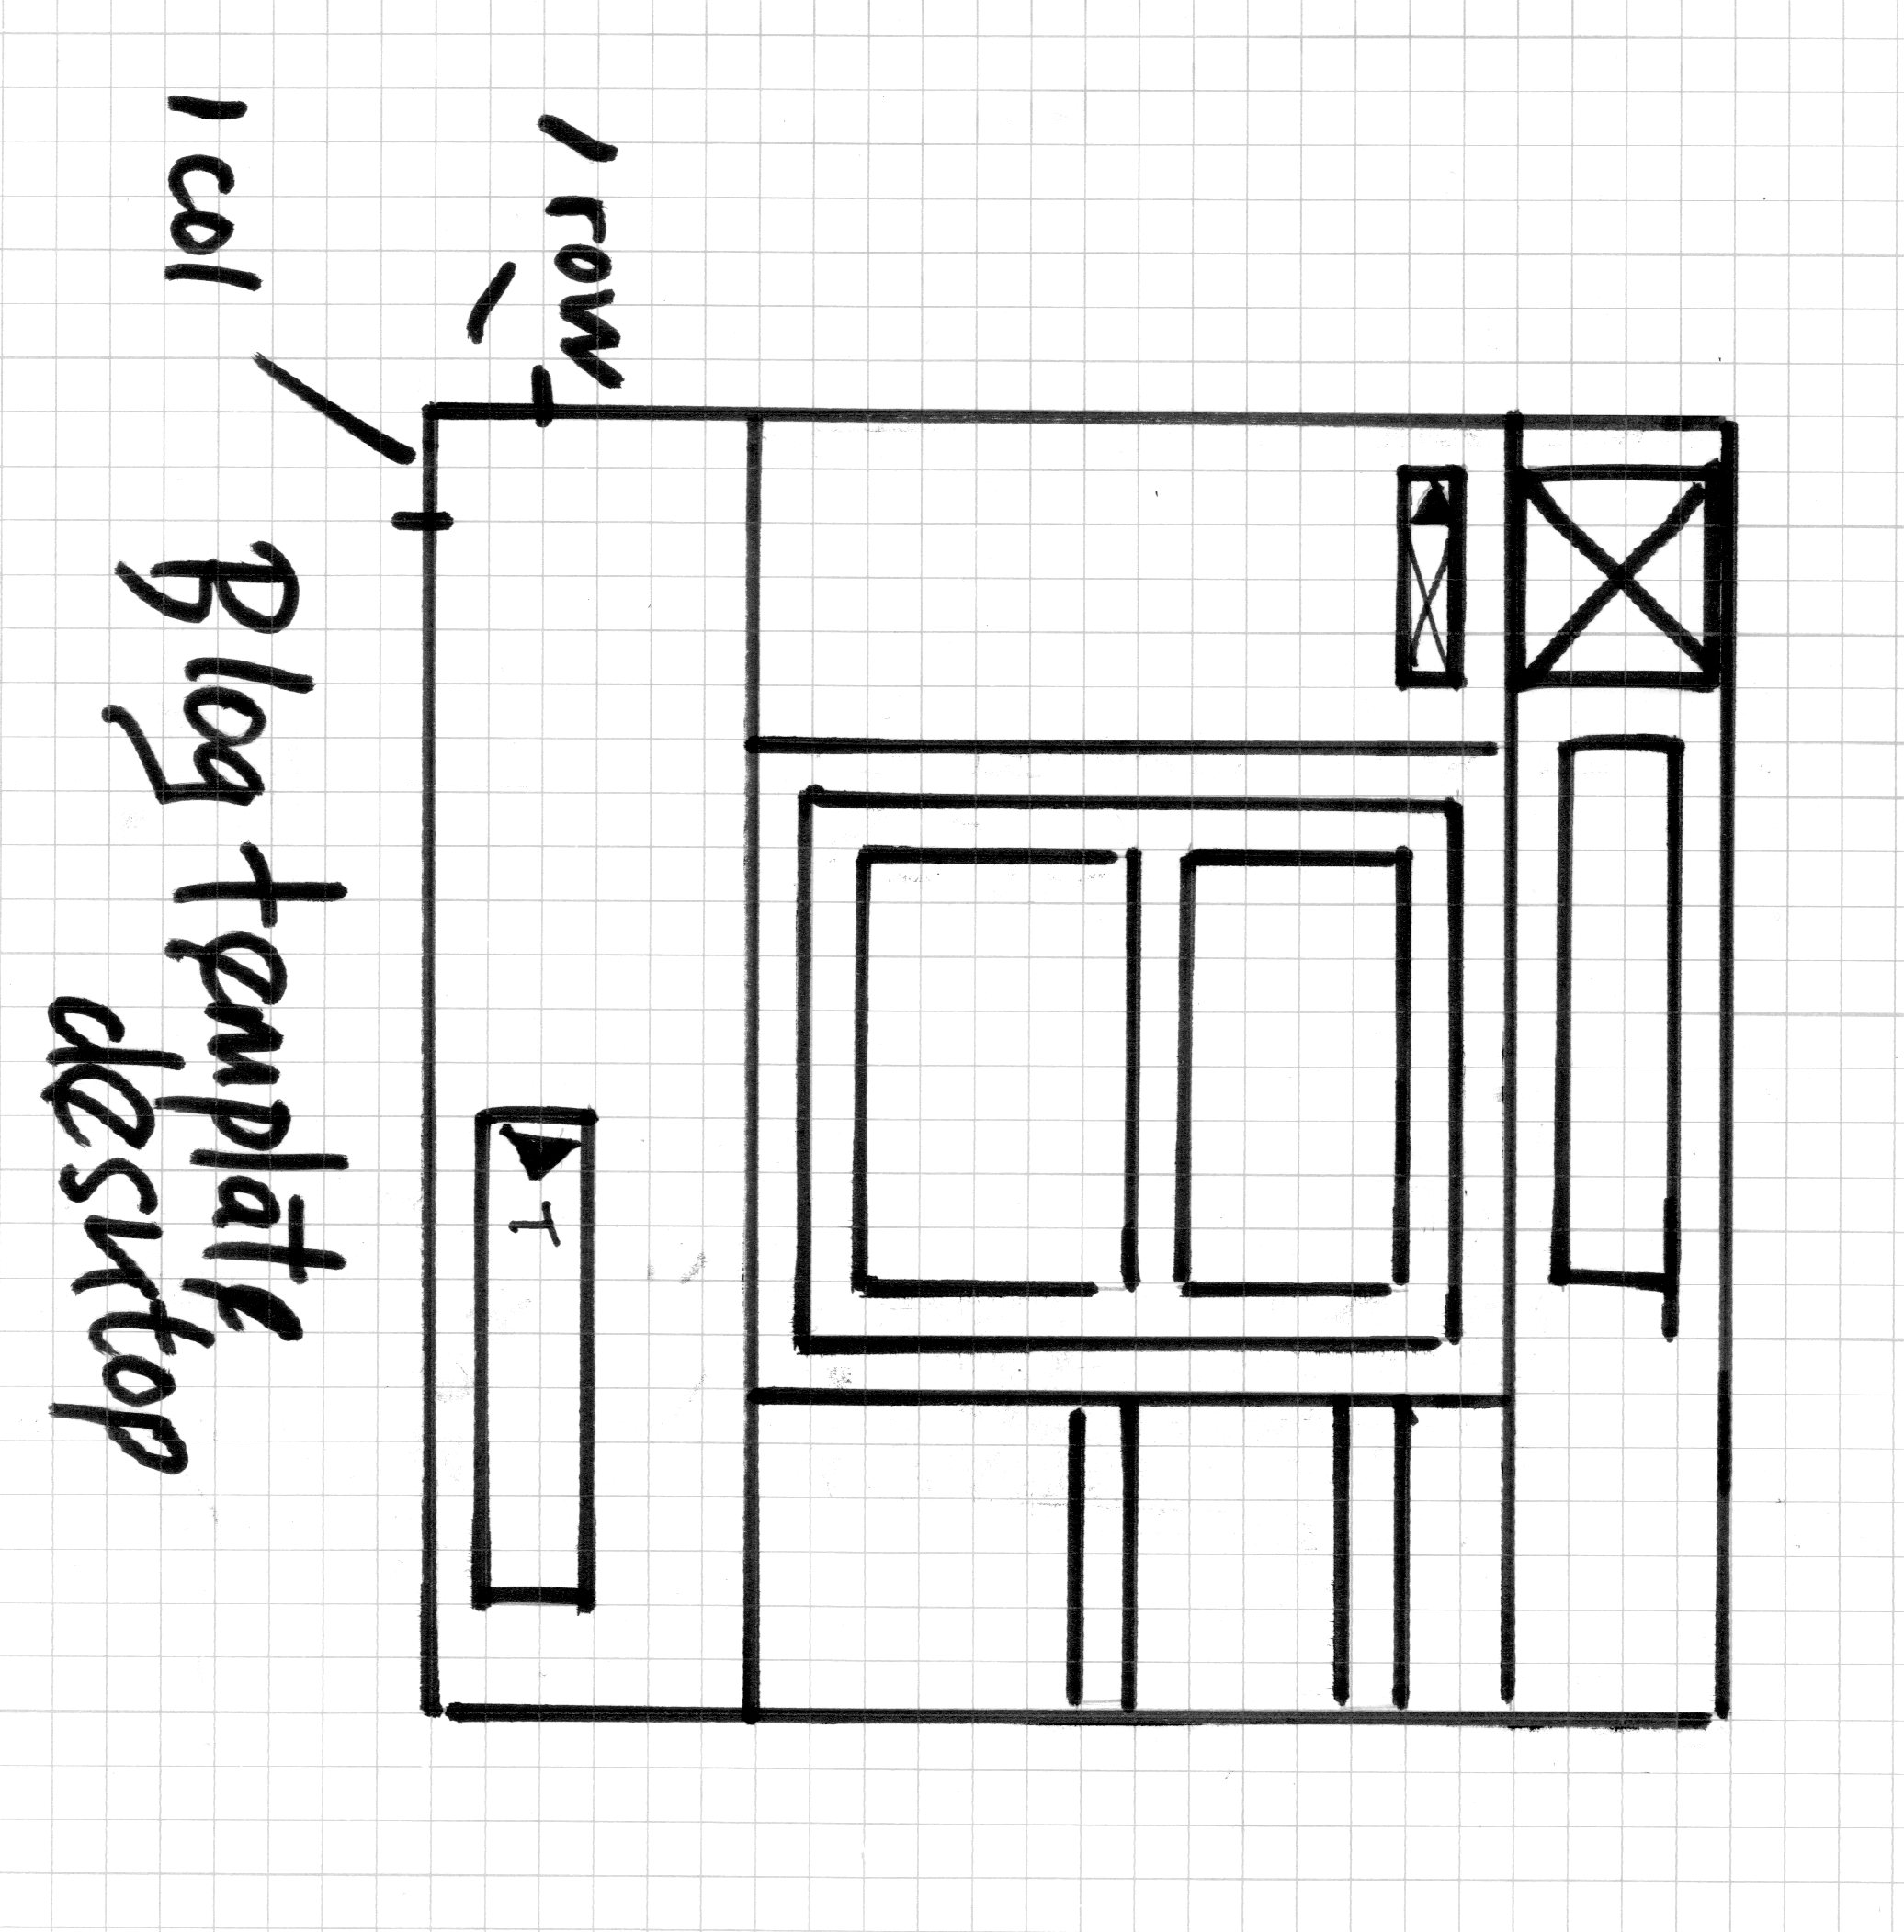 T
1 row
1 col
Blog template
desktop